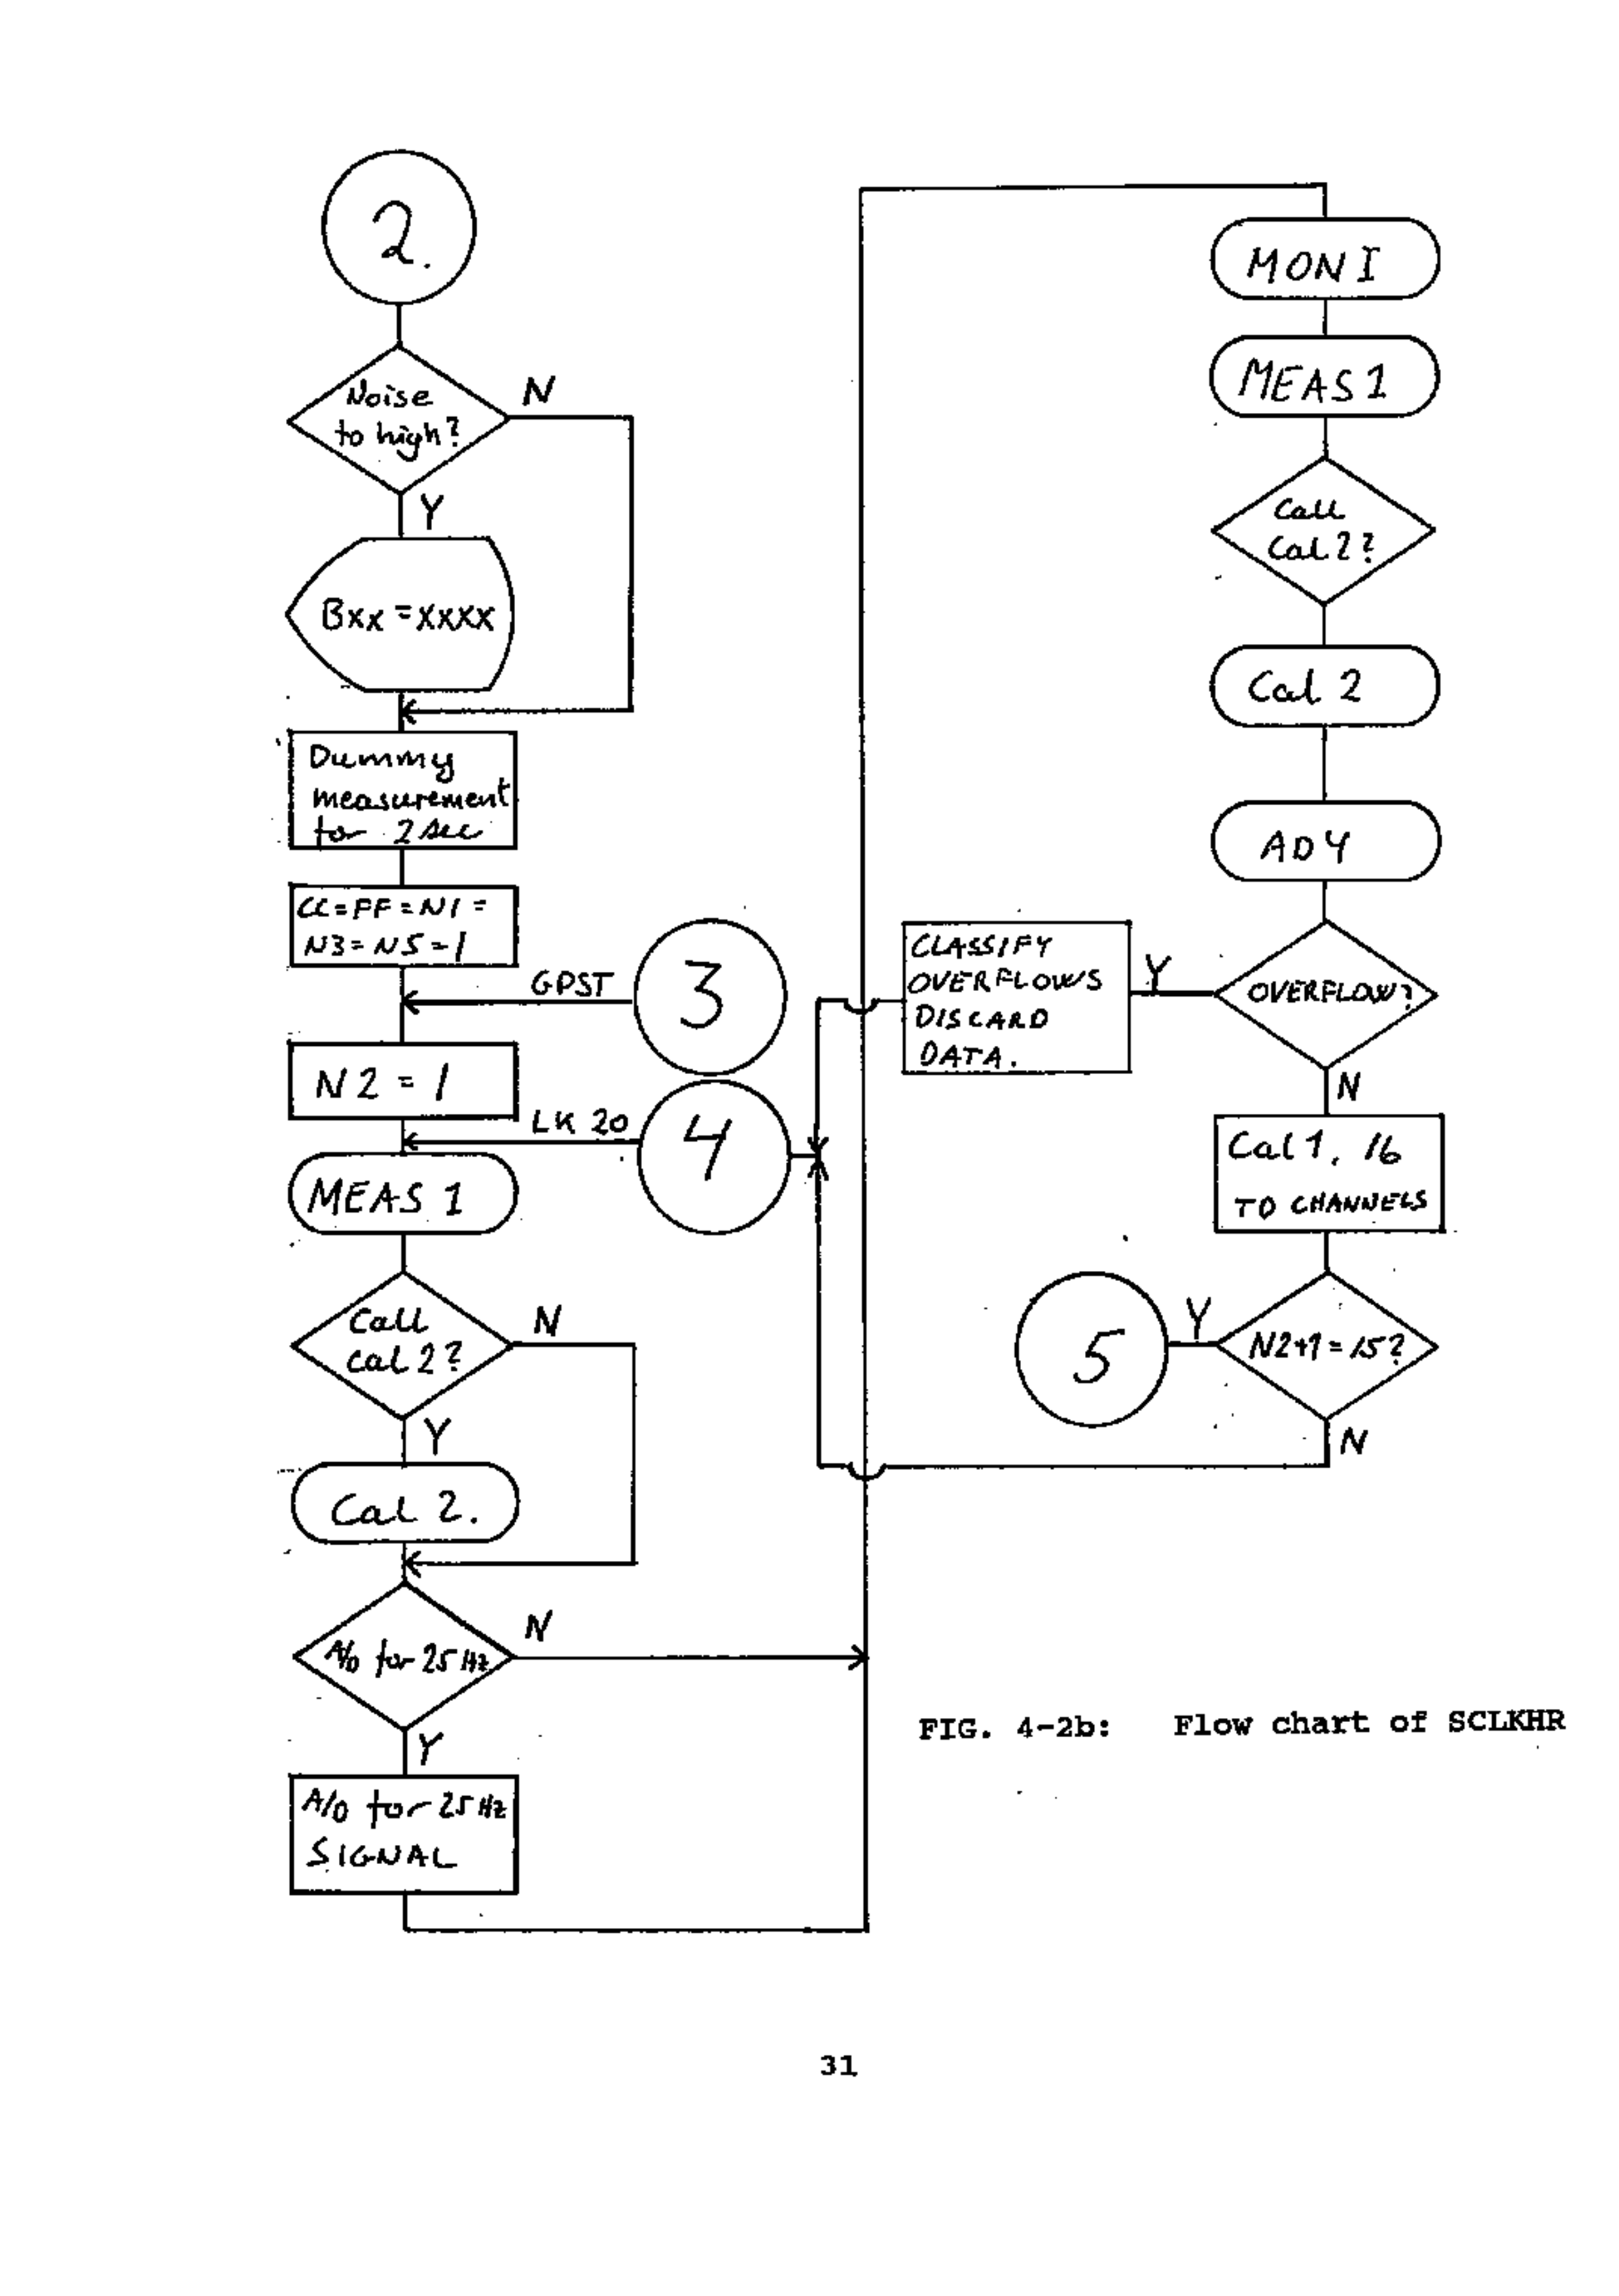 2.
Noise
to high?
N
Y
Bxx = xxxx
Dummy
measurement
for 2 sec
CC = FF = N1 =
N3 = N5 = 1
GPST
3
N2 = 1
LK 20
4
MEAS 1
Call
cal 2?
N
Y
Cal 2.
A/D for 25 Hz
N
Y
A/D for 25 Hz
SIGNAL
MONI
MEAS 1
Call
Cal 2?
Cal 2
AD4
OVERFLOW?
Y
CLASSIFY
OVERFLOWS
DISCARD
DATA.
N
Cal 1, 16
TO CHANNELS
N2+1 = 15?
Y
5
N
FIG. 4-2b: Flow chart of SCLKHR
31